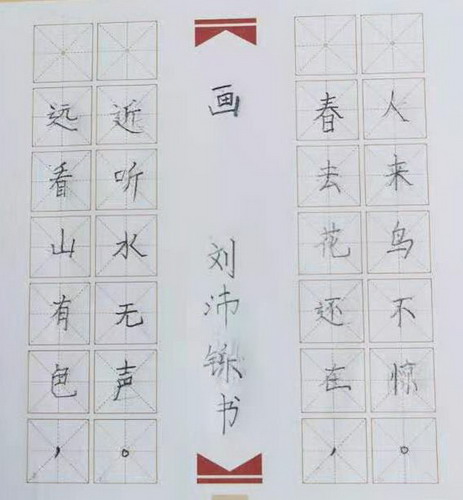 远看山有色，
近听水无声。
画
刘沛铄书
春去花还在，
人来鸟不惊。